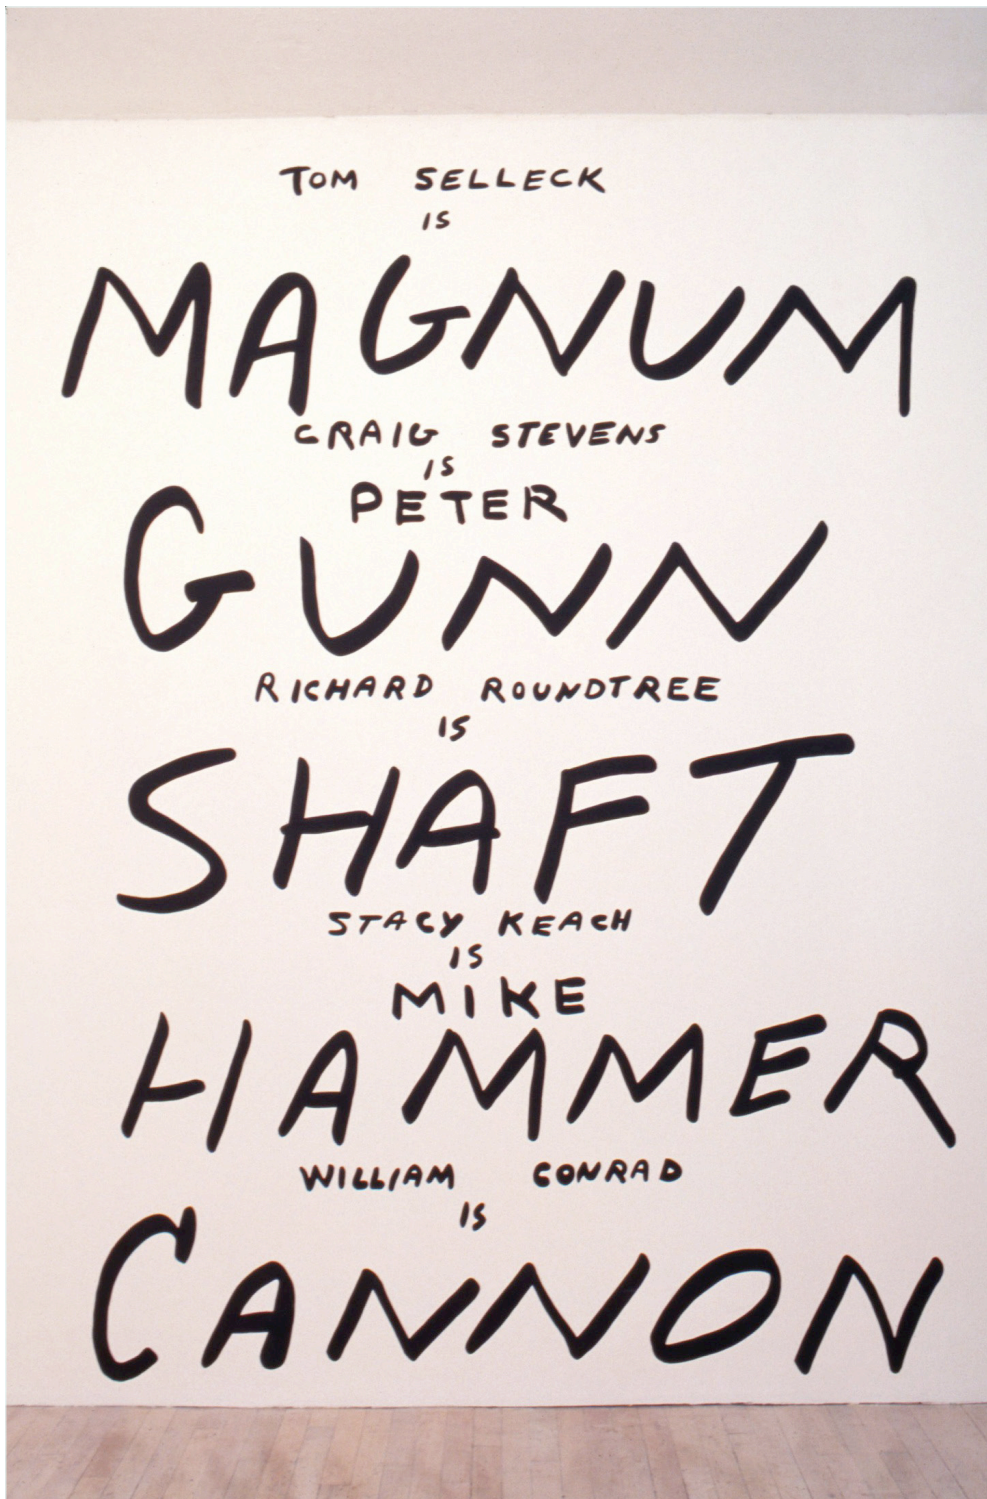 TOM SELLECK
IS
MAGNUM
CRAIG STEVENS
IS
PETER
GUNN
RICHARD ROUNDTREE
IS
SHAFT
STACY KEACH
IS
MIKE
HAMMER
WILLIAM CONRAD
IS
CANNON